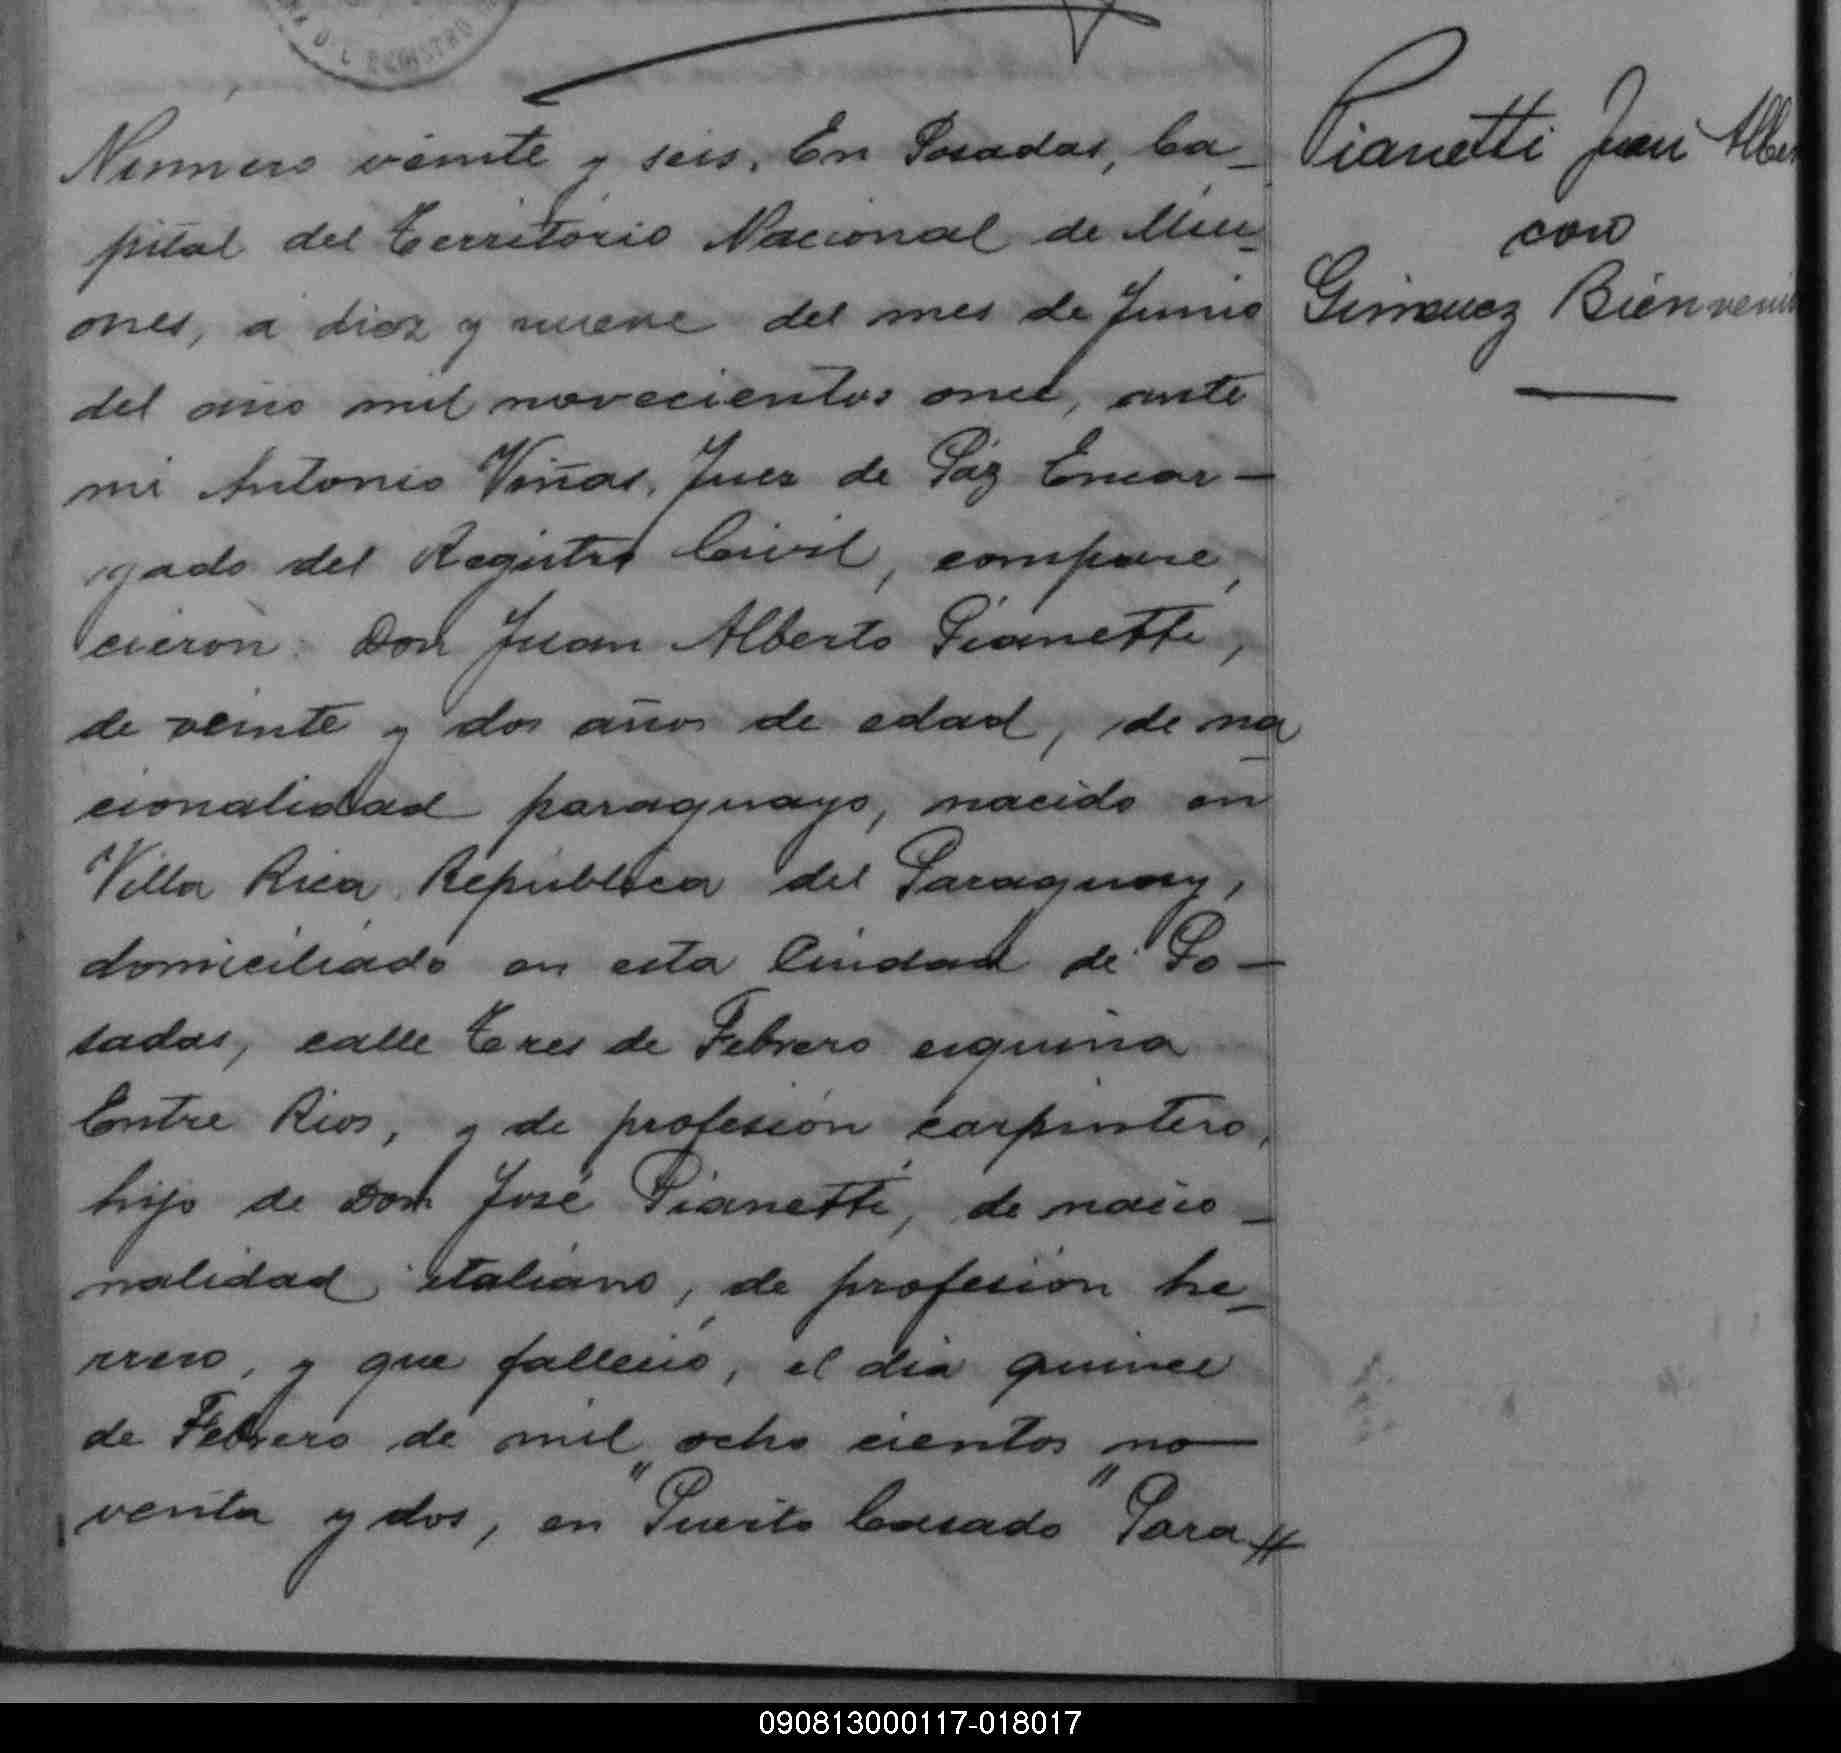 DEL REGISTRO
Número veinte y seis. En Posadas, Ca-
pital del Territorio Nacional de Misi-
ones, á diez y nueve del mes de Junio
del año mil novecientos once, ante
mi Antonio Viñas, Juez de Páz Encar-
gado del Registro Civil, compare,
cieron: Don Juan Alberto Pianetti,
de veinte y dos años de edad, de na
cionalidad paraguayo, nacido en
Villa Rica República del Paraguay,
domiciliado en esta Ciudad de Po-
sadas, calle Tres de Febrero esquina
Entre Rios, y de profesión carpintero,
hijo de Don José Pianetti, de nacio-
nalidad italiano, de profesión he-
rrero, y que falleció, el dia quince
de Febrero de mil ocho cientos no-
venta y dos, en "Puerto Casado" Para//
Pianetti Juan Alber
con
Gimenez Bienveni
090813000117-018017